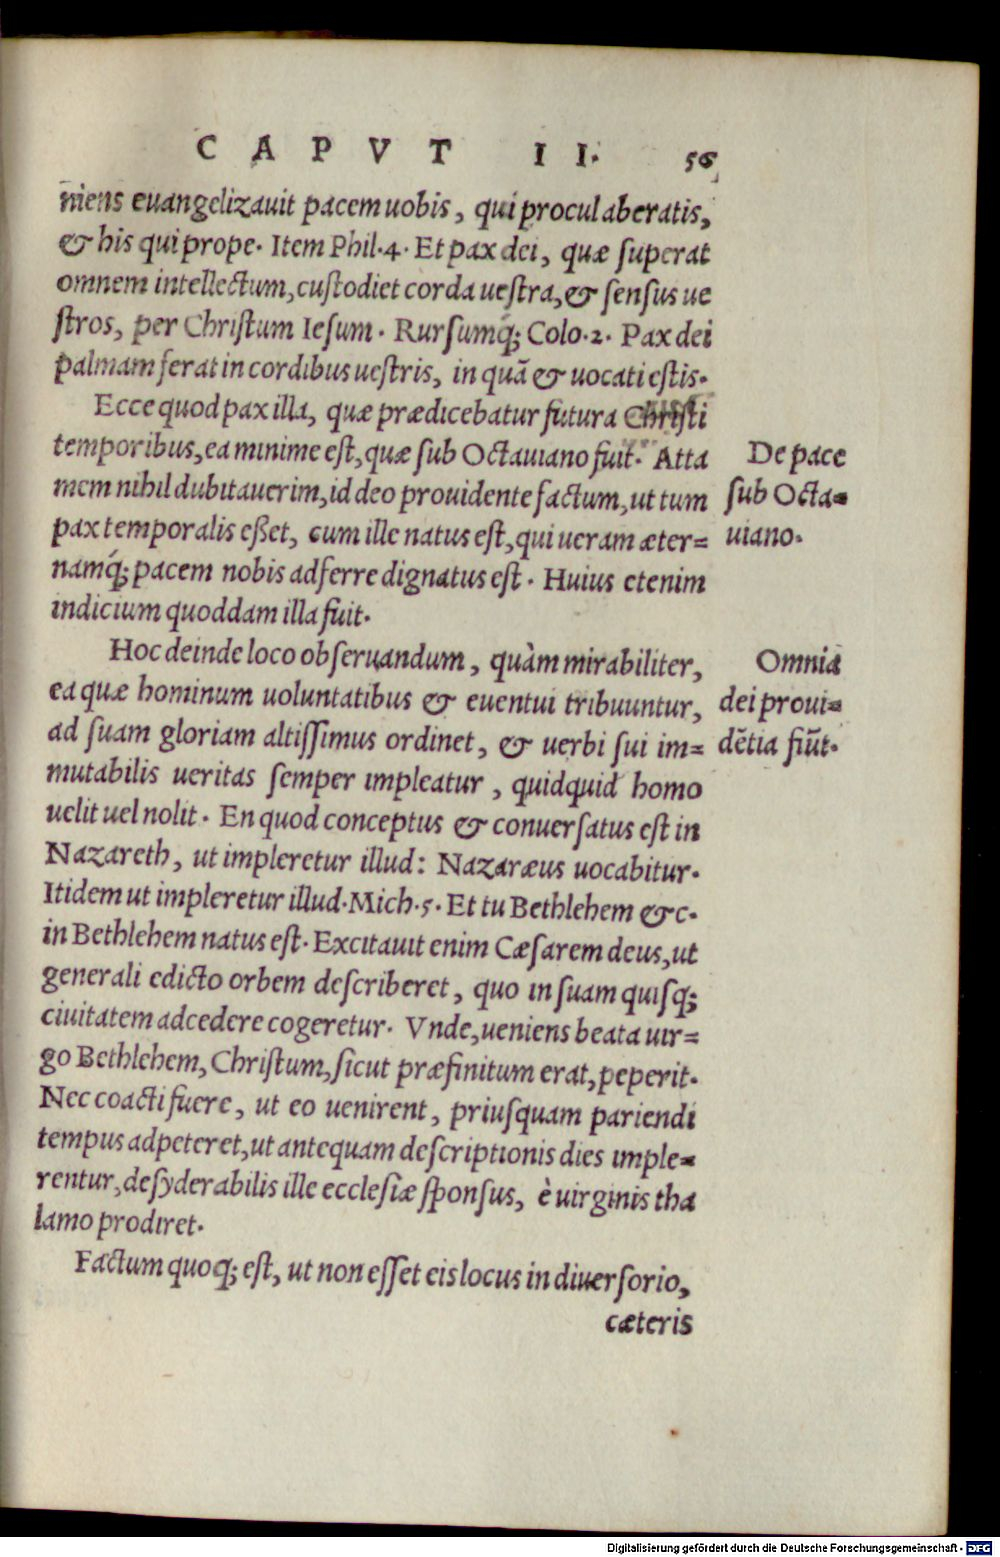 CAPVT II. 56
niens euangelizauit pacem uobis, qui procul aberatis,
& his qui prope. Item Phil.4. Et pax dei, quæ superat
omnem intellectum, custodiet corda uestra, & sensus ue
stros, per Christum Iesum. Rursumq́; Colo.2. Pax dei
palmam ferat in cordibus uestris, in quā & uocati estis.
Ecce quod pax illa, quæ prædicebatur futura Christi
temporibus, ea minime est, quæ sub Octauiano fuit. Atta
mem nihil dubitauerim, id deo prouidente factum, ut tum
pax temporalis eßet, cum ille natus est, qui ueram æter=
namq́; pacem nobis adferre dignatus est. Huius etenim
indicium quoddam illa fuit.
De pace
sub Octa=
uiano.
Hoc deinde loco obseruandum, quàm mirabiliter,
ea quæ hominum uoluntatibus & euentui tribuuntur,
ad suam gloriam altissimus ordinet, & uerbi sui im=
mutabilis ueritas semper impleatur, quidquid homo
uelit uel nolit. En quod conceptus & conuersatus est in
Nazareth, ut impleretur illud: Nazaræus uocabitur.
Itidem ut impleretur illud. Mich.5. Et tu Bethlehem &c.
in Bethlehem natus est. Excitauit enim Cæsarem deus, ut
generali edicto orbem describeret, quo in suam quisq;
ciuitatem adcedere cogeretur. Vnde, ueniens beata uir=
go Bethlehem, Christum, sicut præfinitum erat, peperit.
Nec coacti fuere, ut eo uenirent, priusquam pariendi
tempus adpeteret, ut antequam descriptionis dies imple=
rentur, desyderabilis ille ecclesiæ sponsus, è uirginis tha
lamo prodiret.
Omnia
dei proui=
dētia fiūt.
Factum quoq; est, ut non esset eis locus in diuersorio,
cæteris
Digitalisierung gefördert durch die Deutsche Forschungsgemeinschaft - DFG